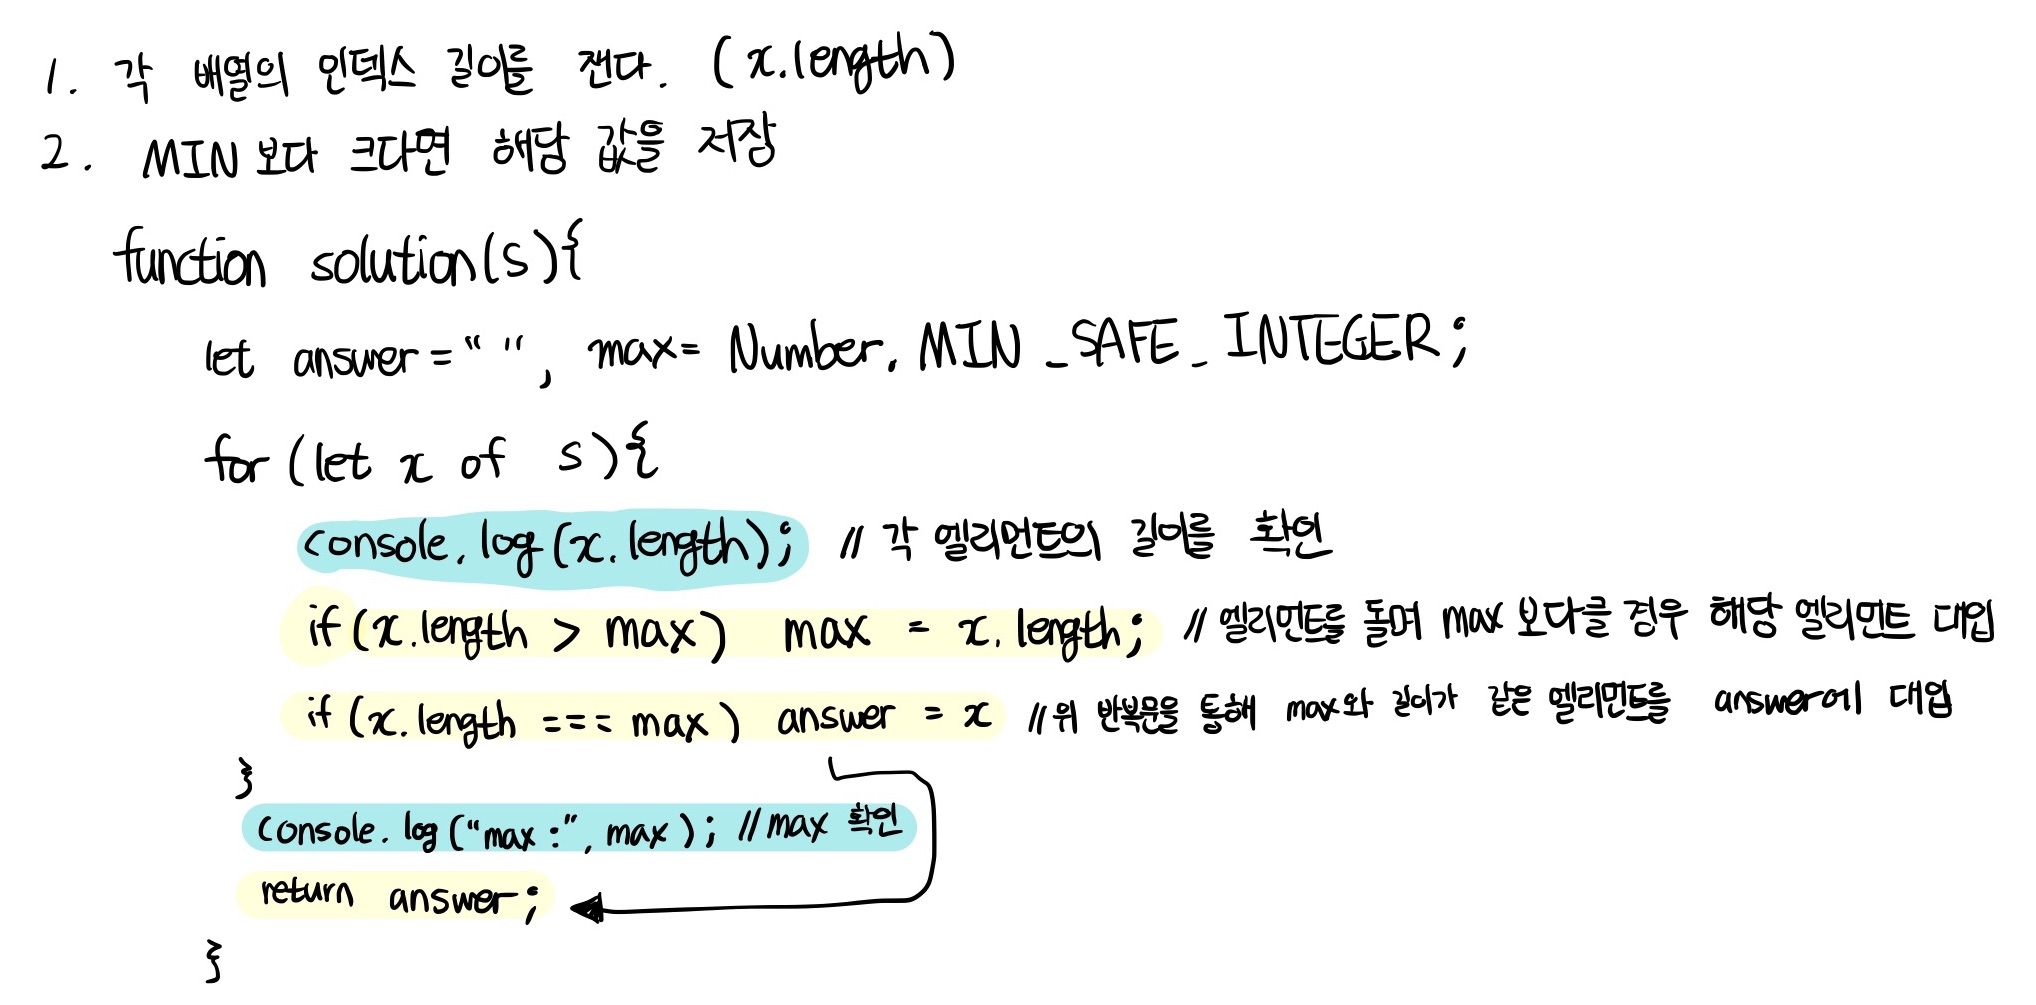 1. 각 배열의 인덱스 길이를 잰다. (x.length)
2. MIN 보다 크다면 해당 값을 저장
function solution(s){
let answer = “ ”, max = Number. MIN _SAFE _ INTEGER ;
for (let x of s){
console. log (x. length); // 각 엘리먼트의 길이를 확인
if (x.length > max) max = x. length; // 엘리먼트를 돌며 max 보다클 경우 해당 엘리먼트 대입
if (x. length === max) answer = x // 위 반복문을 통해 max와 길이가 같은 엘리먼트를 answer에 대입
}
console. log (“max :”, max); // max 확인
return answer;
}